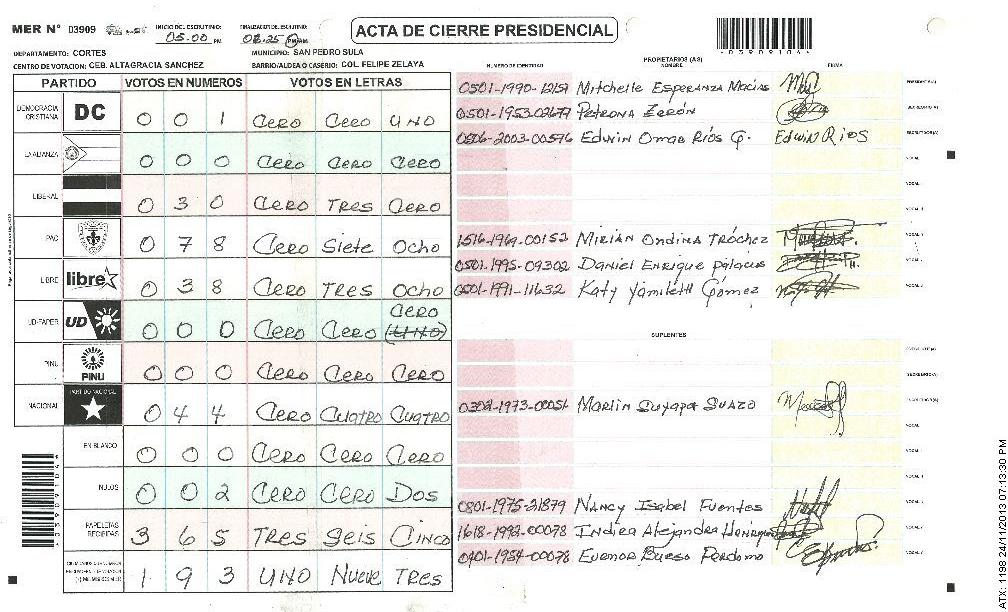 MER N° 03909
INICIO DEL ESCRUTINIO: 05:00 PM
FINALIZACION DEL ESCRUTINIO: 08:25 PM
ACTA DE CIERRE PRESIDENCIAL
DEPARTAMENTO: CORTES
MUNICIPIO: SAN PEDRO SULA
CENTRO DE VOTACION: CEB. ALTAGRACIA SANCHEZ
BARRIO/ALDEA O CASERIO: COL FELIPE ZELAYA
PARTIDO VOTOS EN NUMEROS VOTOS EN LETRAS
DEMOCRACIA CRISTIANA DC 0 0 1 CERO CERO UNO
LA ALIANZA 0 0 0 CERO CERO CERO
LIBERAL 0 3 0 CERO TRES CERO
PAC 0 7 8 CERO Siete Ocho
LIBRE libre 0 3 8 CERO TRES Ocho
UD-FAPER UD 0 0 0 CERO CERO CERO (UNO)
PINU PINU 0 0 0 CERO CERO CERO
NACIONAL PARTIDO NACIONAL 0 4 4 CERO CUATRO CUATRO
EN BLANCO 0 0 0 CERO CERO CERO
NULOS 0 0 2 CERO CERO DOS
PAPELETAS RECIBIDAS 3 6 5 TRES SEIS CINCO
1 9 3 UNO NUEVE TRES
NUMERO DE IDENTIDAD
PROPIETARIOS (AS)
NOMBRE
FIRMA
Mitchelle Esperanza Macias
0501-1953-02679 Petrona Zerón
0506-2003-00576 Edwin Omar Ríos G. Edwin Rios
1516-1969-00152 Mirián Ondina Tróchez
0501-1995-09302 Daniel Enrique Palacios
0501-1991-11632 Katy Yamileth Gómez
SUPLENTES
-1973-00051 Marlin Suyapa Suazo
0801-1975-21879 Nancy Isabel Fuentes
1618-1992-00078 Indira Alejandra
-00078 Bueso Perdomo
1198 24/11/2013 07:13:30 PM